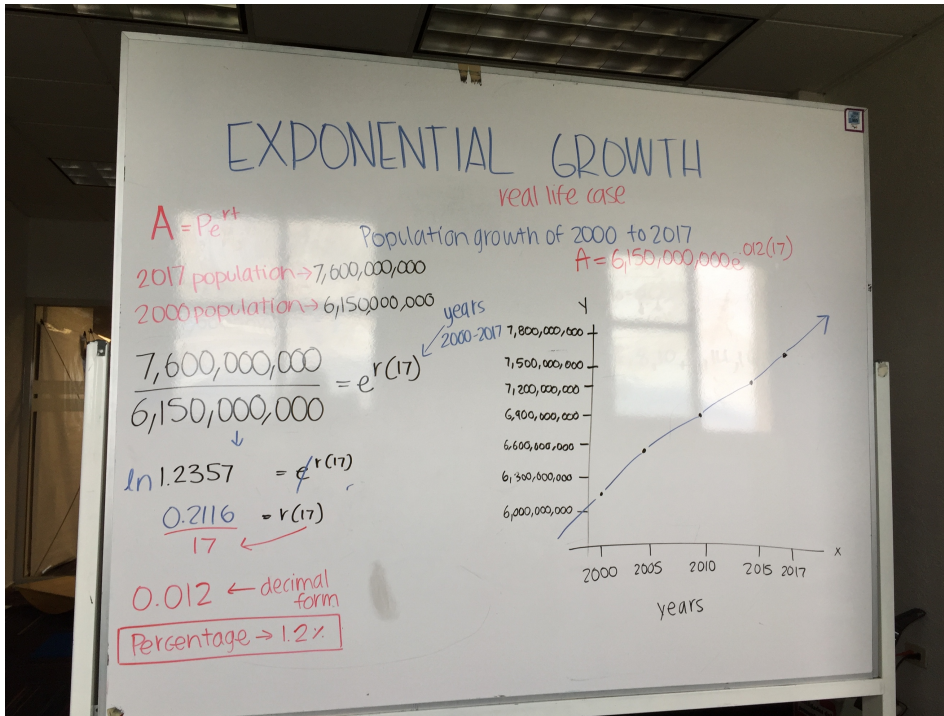 EXPONENTIAL GROWTH
real life case
A = Pe^rt
Population growth of 2000 to 2017
A = 6,150,000,000e^.012(17)
2017 population → 7,600,000,000
2000 population → 6,150,000,000
years
2000-2017
7,600,000,000
6,150,000,000
= e^r(17)
↓
ln 1.2357 = e^r(17)
0.2116 = r(17)
17
0.012 ← decimal
form
Percentage → 1.2%
Y
7,800,000,000
7,500,000,000
7,200,000,000
6,900,000,000
6,600,000,000
6,300,000,000
6,000,000,000
X
2000 2005 2010 2015 2017
years